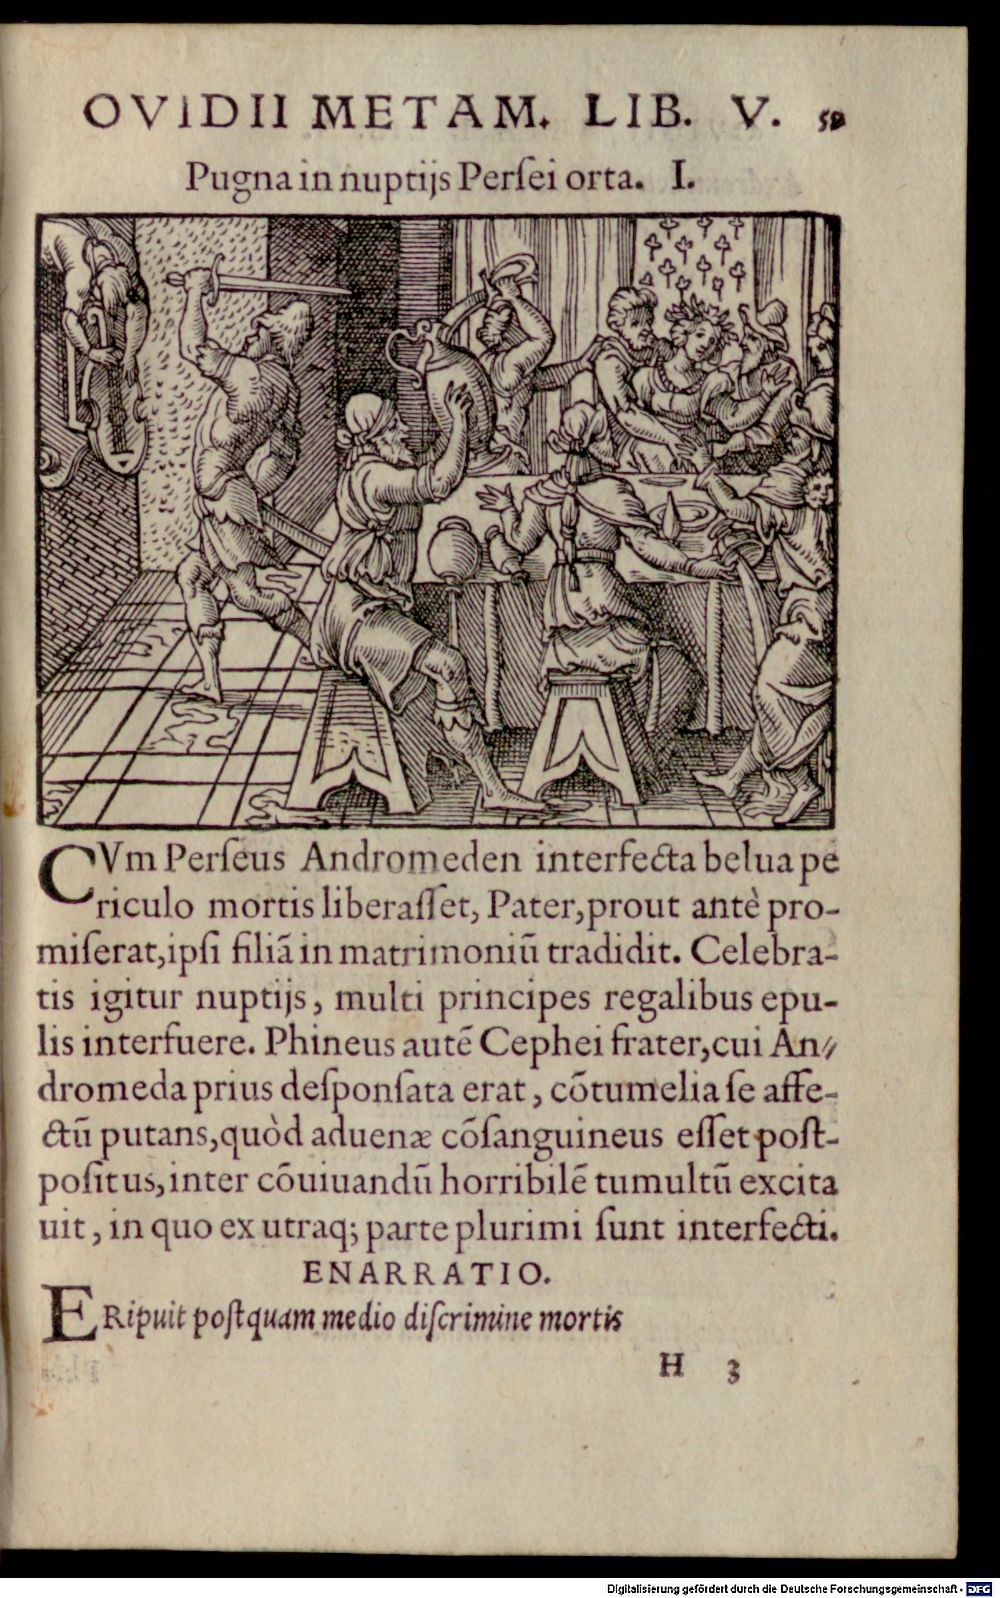 OVIDII METAM. LIB. V.
Pugna in nuptijs Perſei orta. I.
CVm Perſeus Andromeden interfecta belua pe
riculo mortis liberaſſet, Pater, prout antè pro-
miſerat, ipſi filiã in matrimoniũ tradidit. Celebra-
tis igitur nuptijs, multi principes regalibus epu-
lis interfuere. Phineus autẽ Cephei frater, cui An-
dromeda prius deſponſata erat, cõtumelia ſe affe-
ctũ putans, quòd aduenæ cõſanguineus eſſet poſt-
poſitus, inter cõuiuandũ horribilẽ tumultũ excita
uit, in quo ex utraq; parte plurimi ſunt interfecti.
ENARRATIO.
ERipuit poſtquam medio diſcrimine mortis
H 3
Digitalisierung gefördert durch die Deutsche Forschungsgemeinschaft - DFG